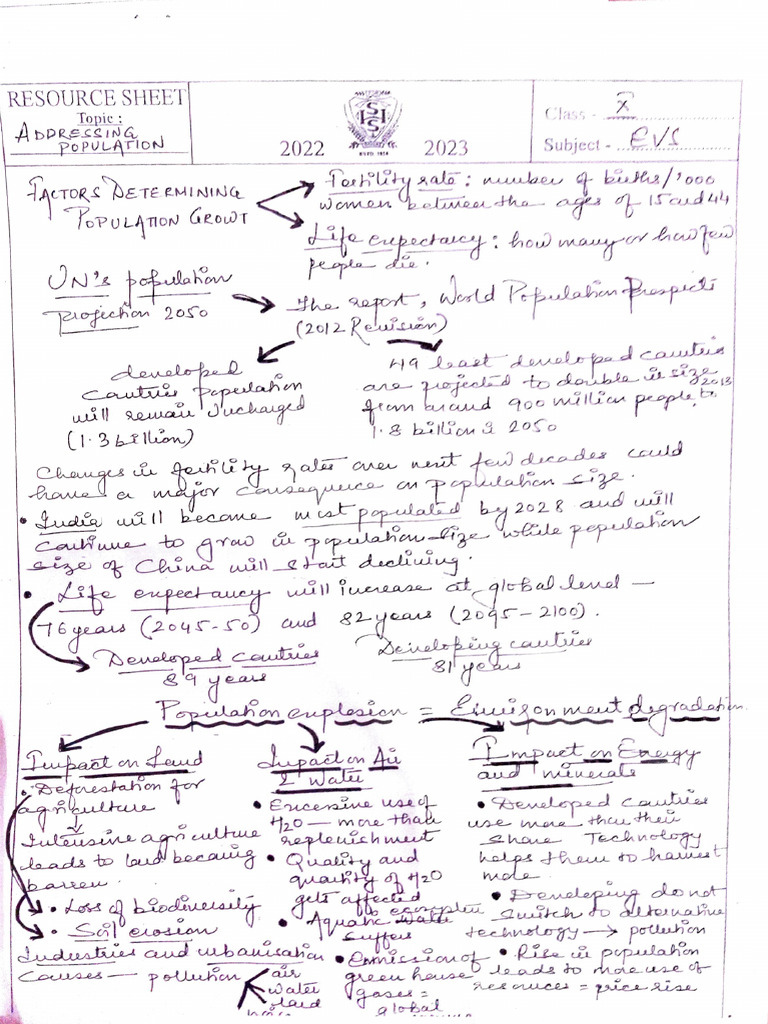 RESOURCE SHEET
Topic :
ADDRESSING
POPULATION
2022
2023
Class - X
Subject - EVS
FACTORS DETERMINING
POPULATION GROWT
Fertility rate : number of births/'000
women between the ages of 15 and 44
Life expectancy : how many or how few
people die.
UN's population
projection 2050
The report, World Population Prospects
(2012 Revision)
developed
coutries population
will remain Unchanged
(1.3 billion)
49 least developed coutries
are projected to double in size
from around 900 million people, 2013 to
1.8 billion in 2050
Changes in fertility rates over next few decades could
have a major consequence on population size.
• India will become most populated by 2028 and will
continue to grow in population size while population
size of China will start declining.
• Life expectancy will increase at global level —
76 years (2045-50) and 82 years (2095-2100).
Developed coutries
89 years
Developing coutries
81 years
Population explosion = Environment degradation
Impact on Land
• Deforestation for
agriculture
Intensive agriculture
leads to land becoming
barren.
• Loss of biodiversity
• Soil erosion
Industries and urbanisation
causes — pollution
air
water
land
Impact on Air
& Water
• Excessive use of
H2O — more than
replenishment
• Quality and
quantity of H2O
gets affected
• Aquatic ecosystem
suffers
• Emission of
green house
gases =
global
Impact on Energy
and minerals
• Developed coutries
use more than their
share Technology
helps them to harvest
more
• Developing do not
switch to alternative
technology → pollution
• Rise in population
leads to more use of
resources = price rise